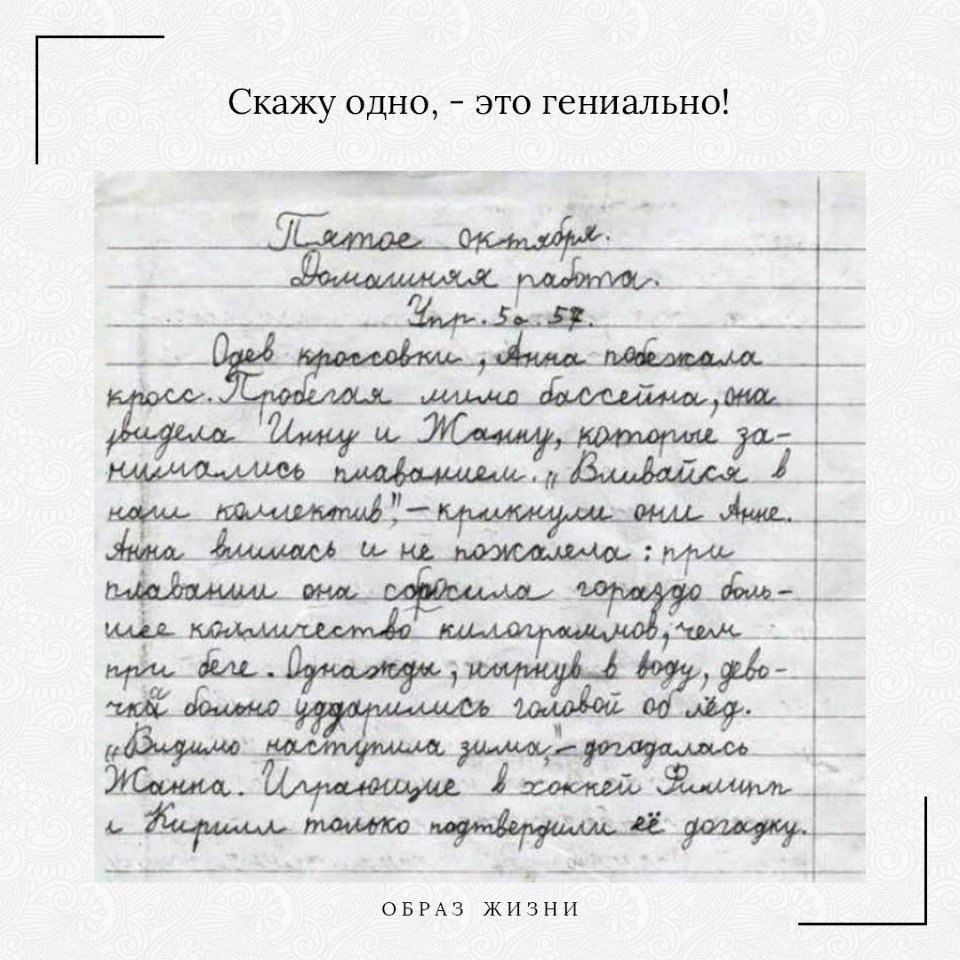 Скажу одно, - это гениально!
Пятое октября.
Домашняя работа.
Упр. 5 с. 57.
Одев кроссовки, Анна побежала
кросс. Пробегая мимо бассейна, она
увидела Инну и Жанну, которые за-
нимались плаванием. „Вливайся в
наш коллектив", - крикнули они Анне.
Анна влилась и не пожалела: при
плавании она сбросила гораздо боль-
шее колличество килограммов, чем
при беге. Однажды, нырнув в воду, дево-
чка больно ударились головой об лёд.
„Видимо наступила зима," - догадалась
Жанна. Играющие в хоккей Филипп
и Кирилл только подтвердили её догадку.
ОБРАЗ ЖИЗНИ